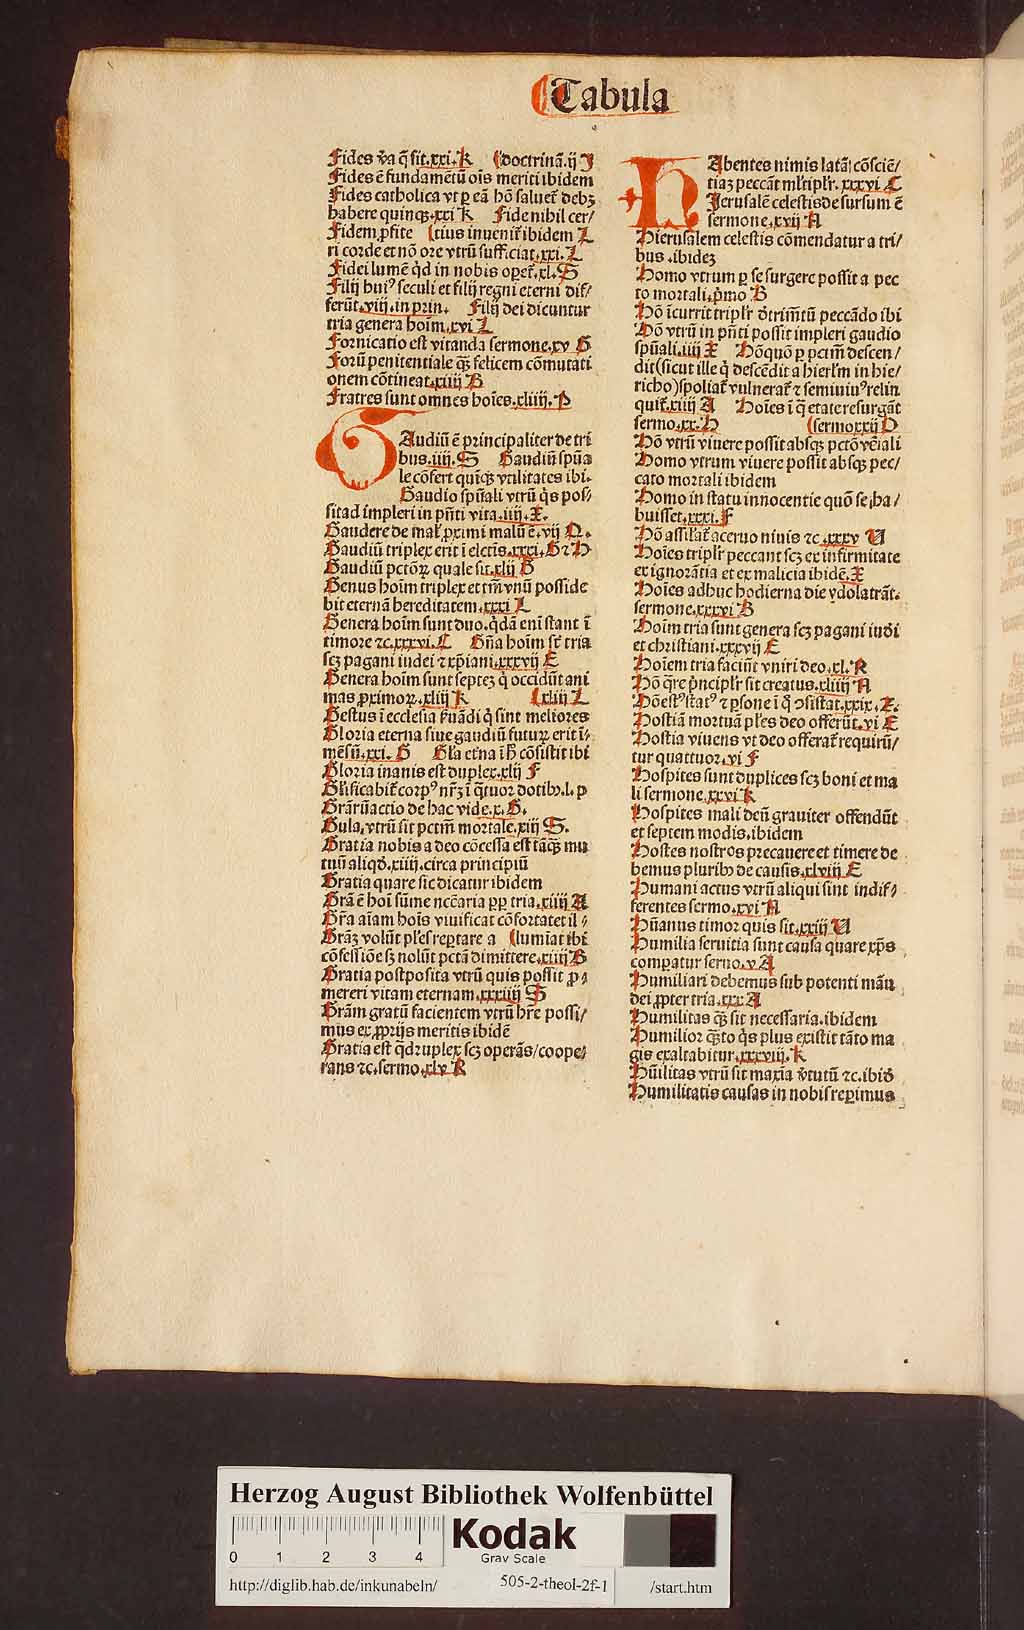 Tabula
Fides v̄a q̄ sit.xxi.K doctrinā.ij J
Fides ē fundamētū oīs meriti ibidem
Fides catholica vt ꝑ eā hō saluet᷑ debꝫ
habere quinqꝫ.xxi K Fide nihil cer/
Fidem ꝑfite tius inuenit᷑ ibidem L
ri corde et nō ore vtrū sufficiat.xxi.L
Fidei lumē q̇d in nobis oꝑet᷑.xl.S
Filij huiꝰ seculi et filij regni eterni dif/
ferūt.viij.in prin. Filij dei dicuntur
tria genera hoīm.xvi L
Fornicatio est vitanda sermone.xv G
Forū penitentiale qꝫ felicem cōmutati
onem cōtineat.xiiij B
Fratres sunt omnes hoīes.xliiij.P
GAudiū ē principaliter de tri
bus.iiij.S Gaudiū spūa
le cōfert quīqꝫ vtilitates ibi.
Gaudio spūali vtrū q̇s pos/
sit ad impleri in pn̄ti vita.iiij.X.
Gaudere de mal᷑ ꝓximi malū ē.vij Q.
Gaudiū triplex erit ī electis.xxxi.G ⁊ H
Gaudiū pctōꝝ quale sit.xlij B
Genus hoīm triplex et tm̄ vnū posside
bit eternā hereditatem.xxxi L
Genera hoīm sunt duo.q̇dā enī stant ī
timore ⁊c.xxxvi.C Gn̄a hoīm st̄ tria
scꝫ pagani iudei ⁊ xp̄iani.xxxvij E
Genera hoīm sunt septeꝫ q̇ occidūt ani
mas ꝓximoꝝ.xliij K xliij L
Gestus ī ecclesia ẜuādi q̇ sint meliores
Gloria eterna siue gaudiū futuꝝ erit ī
mēsū.xxi.G Gl̄a etn̄a ī hͦ cōsistit ibi
Gloria inanis est duplex.xlij F
Gl̄ificabit᷑ corpꝰ nr̄ꝫ ī q̇tuor dotibꝫ.l.p
Grāꝝ actio de hac vide.x.G.
Gula vtrū sit pctm̄ mortale.xiij S.
Gratia nobis a deo cōcessa est tāqꝫ mu
tuū aliqd̄.xiiij.circa principiū
Gratia quare sic dicatur ibidem
Grā ē hoī sūme nccāria ꝓp tria.xiiij A
Gr̄a aīam hoīs viuificat cōfortat et il/
Grāꝫ volūt pl̄es reꝑtare a lumiat ibi
cōfessiōe sꝫ nolūt pctā dimittere.xiiij B
Gratia postposita vtrū quis possit ꝓ/
mereri vitam eternam.xxxiiij S
Grām gratū facientem vtrū hr̄e possi/
mus ex ꝓprijs meritis ibidē
Gratia est q̄druplex scꝫ operās/coope/
rans ⁊c.sermo.xlv R
HAbentes nimis latā cōsciē/
tiaꝫ peccāt ml̄tipl᷑r.xxxvi C
Jerusalē celestis de sursum ē
sermone.xvij A
Hierusalem celestis cōmendatur a tri/
bus.ibideꝫ
Homo vtrum ꝑ se surgere possit a pec
to mortali.p̄mo B
Hō īcurrit tripl᷑r dt̄rimtū peccādo ibi
Hō vtrū in pn̄ti possit impleri gaudio
spūali.iiij X Hō quō ꝑ pctm̄ descen/
dit(sicut ille q̇ descēdit a hierl᷑m in hie/
richo)spoliat᷑ vulnerat᷑ ⁊ semiuiuꝰ relin
quit᷑.xiiij A Hoīes ī q̄ etate resurgāt
sermo.xx.H sermo xxij D
Hō vtrū viuere possit absqꝫ pctō vēiali
Homo vtrum viuere possit absqꝫ pec/
cato mortali ibidem
Homo in statu innocentie quō se ha/
buisset.xxxi.F
Hō assilat᷑ aceruo niuis ⁊c.xxxv U
Hoīes tripl᷑r peccant scꝫ ex infirmitate
ex ignorātia et ex malicia ibidē.X
Hoīes adhuc hodierna die ydolatrāt.
sermone.xxxvi B
Hoīm tria sunt genera scꝫ pagani iudī
et christiani.xxxvij E
Hoīem tria faciūt vniri deo.xl.R
Hō q̄re p̄ncipl᷑r sit creatus.xliiij A
Hō estꝰ statꝰ ⁊ ꝑsone ī q̇ ↄsistat.xxix.E.
Hostiā mortuā pl̄es deo offerūt.vi E
Hostia viuens vt deo offerat᷑ requirū/
tur quattuor.vi F
Hospites sunt duplices scꝫ boni et ma
li sermone.xxvi K
Hospites mali deū grauiter offendūt
et septem modis.ibidem
Hostes nostros precauere et timere de
bemus pluribꝫ de causis.xlviij E
Humani actus vtrū aliqui sint indif/
ferentes sermo.xvi A
Hūanus timor quis sit.xxiij U
Humilia seruitia sunt causa quare xp̄s
comꝑatur serno.v A
Humiliari debemus sub potenti māu
dei ꝓpter tria.xxx A
Humilitas qꝫ sit necessaria.ibidem
Humilior qꝫto q̇s plus existit tāto ma
gis exaltabitur.xxxviij.K
Hūilitas vtrū sit maxīa v̄tutū ⁊c.ibid̄
Humilitatis causas in nobis reꝑimus
Herzog August Bibliothek Wolfenbüttel
0 1 2 3 4
Kodak
Gray Scale
http://diglib.hab.de/inkunabeln/ 505-2-theol-2f-1 /start.htm